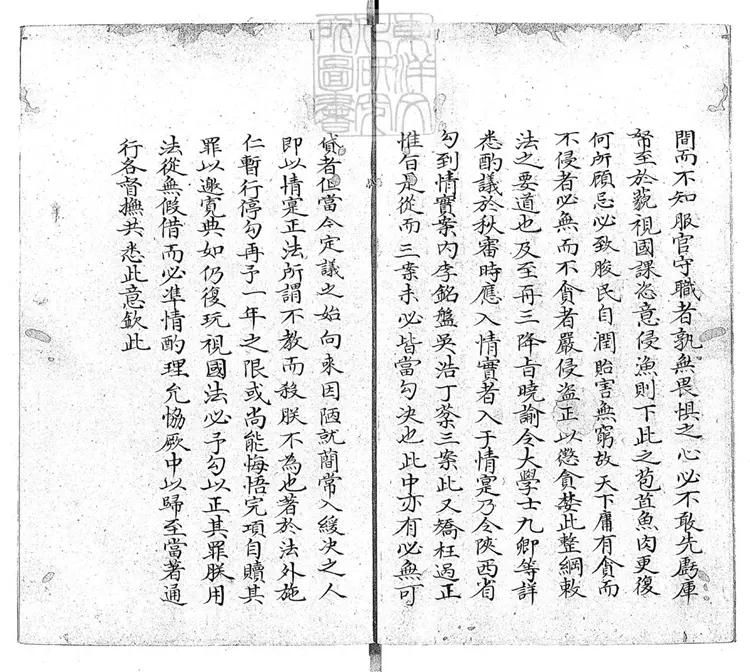 東洋文
化研究
所圖書
間而不知服官守職者孰無畏惧之心必不敢先虧庫
帑至於藐視國課恣意侵漁則下此之苞苴魚肉更復
何所顧忌必致朘民自潤貽害無窮故天下庸有貪而
不侵者必無而不貪者嚴侵盗正以懲貪婪此整綱敕
法之要道也及至再三降㫖曉諭令大學士九卿等詳
悉酌議於秋審時應入情實者入于情寔乃今陝西省
勾到情實案内李銘盤吳浩丁棻三案此又矯枉過正
惟㫖是從而三案未必皆當勾决也此中亦有必無可
貸者但當今定議之始向來因陋就簡常入緩决之人
即以情寔正法所謂不教而殺朕不為也著於法外施
仁暫行停勾再予一年之限或尚能悔悟完項自贖其
罪以邀寛典如仍復玩視國法必予勾以正其罪朕用
法從無假借而必準情酌理允恊厥中以歸至當著通
行各督撫共悉此意欽此